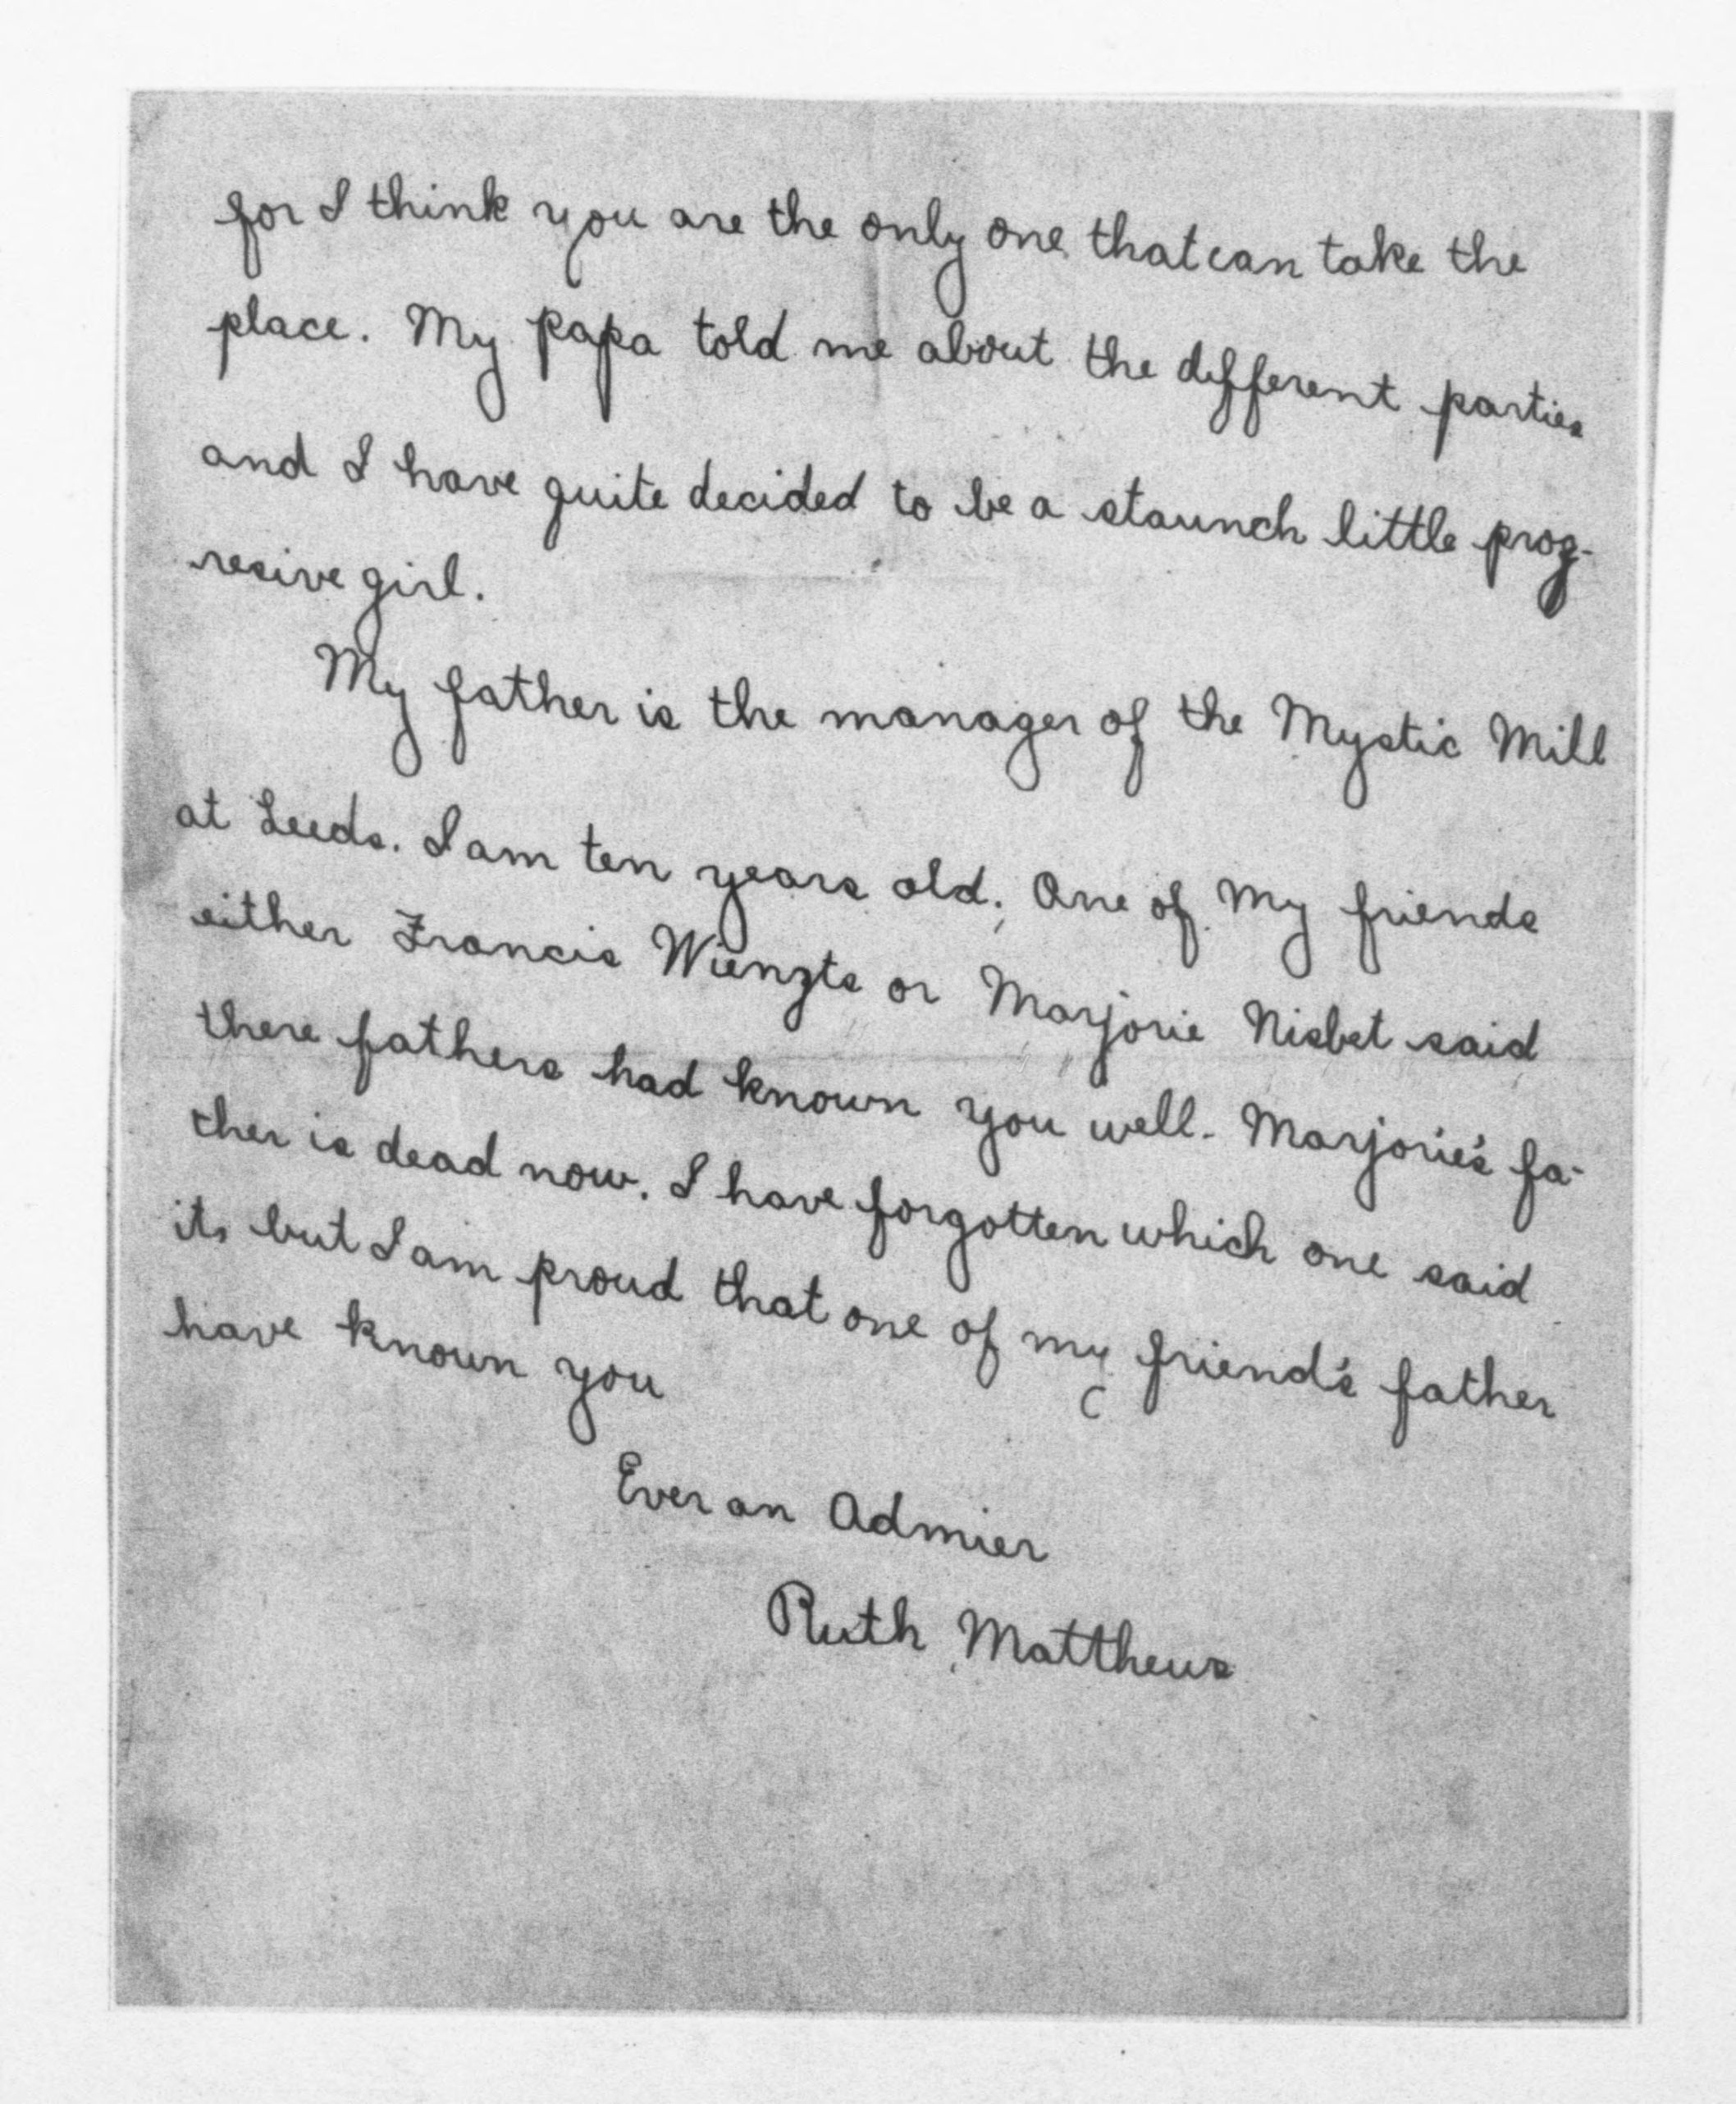 for I think you are the only one that can take the
place. My papa told me about the different parties
and I have quite decided to be a staunch little prog-
resive girl.
My father is the manager of the Mystic Mill
at Leeds. I am ten years old. One of my friends
either Francis Wienzts or Marjorie Nisbet said
there fathers had known you well. Marjorie's fa-
ther is dead now. I have forgotten which one said
it, but I am proud that one of my friend's father
have known you
Ever an Admier
Ruth Matthews